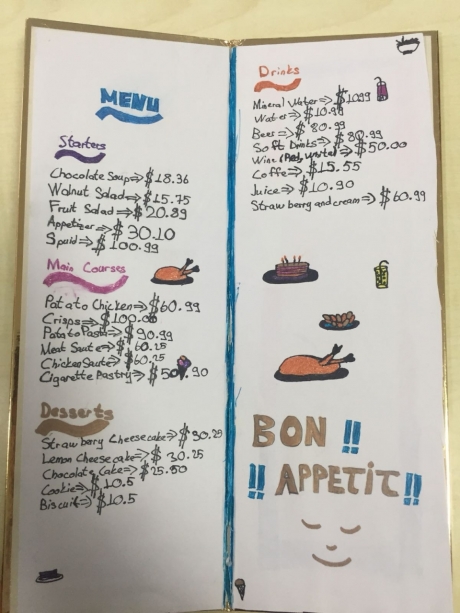 MENU
Starters
Chocolate Soup⇒$18.36
Walnut Salad⇒$15.75
Fruit Salad⇒$20.89
Appetizer⇒$30.10
Spaid⇒$100.99
Main Courses
Patato Chicken⇒$60.99
Crisps⇒$100.00
Patato Pasta⇒$90.99
Meat Saute⇒$60.25
Chicken Saute⇒$60.25
Cigarette Pastry⇒$50.90
Desserts
Strawberry Cheesecake⇒$30.25
Lemon Cheesecake⇒$30.25
Chocolate Cake⇒$25.50
Cookie⇒$10.5
Biscuit⇒$10.5
Drinks
Mineral Water⇒$10.99
Water⇒$10.99
Beer⇒$80.99
Soft Drinks⇒$80.99
Wine (Red, White)⇒$50.00
Coffe⇒$15.55
Juice⇒$10.90
Strawberry and cream⇒$60.99
BON !!
!! APPETİT !!